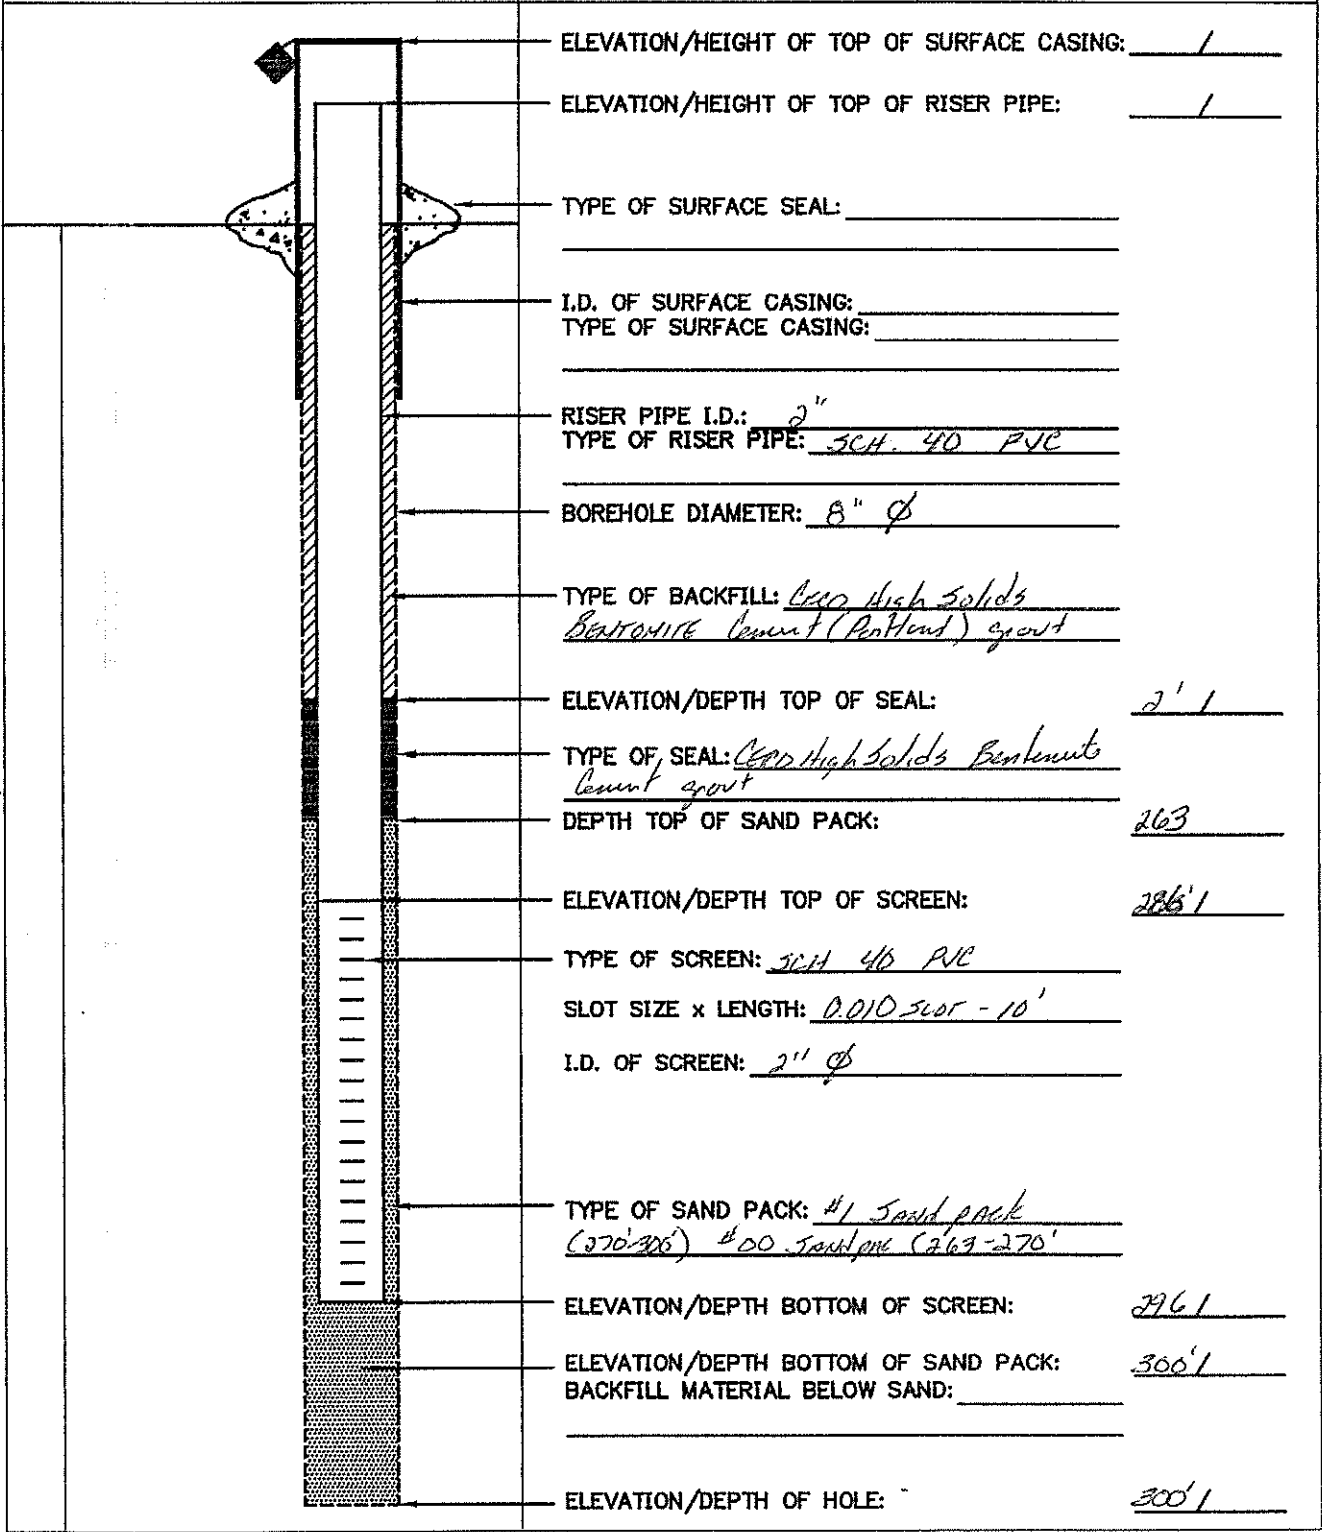 ELEVATION/HEIGHT OF TOP OF SURFACE CASING: /
ELEVATION/HEIGHT OF TOP OF RISER PIPE: /
TYPE OF SURFACE SEAL:
I.D. OF SURFACE CASING:
TYPE OF SURFACE CASING:
RISER PIPE I.D.: 2"
TYPE OF RISER PIPE: SCH. 40 PVC
BOREHOLE DIAMETER: 8" Ø
TYPE OF BACKFILL: High Solids
BENTONITE Cement (Portland) grout
ELEVATION/DEPTH TOP OF SEAL: 2' /
TYPE OF SEAL: High Solids Bentonite
Cement grout
DEPTH TOP OF SAND PACK: 263
ELEVATION/DEPTH TOP OF SCREEN: 286' /
TYPE OF SCREEN: SCH 40 PVC
SLOT SIZE x LENGTH: 0.010 SLOT - 10'
I.D. OF SCREEN: 2" Ø
TYPE OF SAND PACK: #1 Sand pack
(270'-300') #00 Sand (263-270'
ELEVATION/DEPTH BOTTOM OF SCREEN: 296 /
ELEVATION/DEPTH BOTTOM OF SAND PACK: 300' /
BACKFILL MATERIAL BELOW SAND:
ELEVATION/DEPTH OF HOLE: 300' /